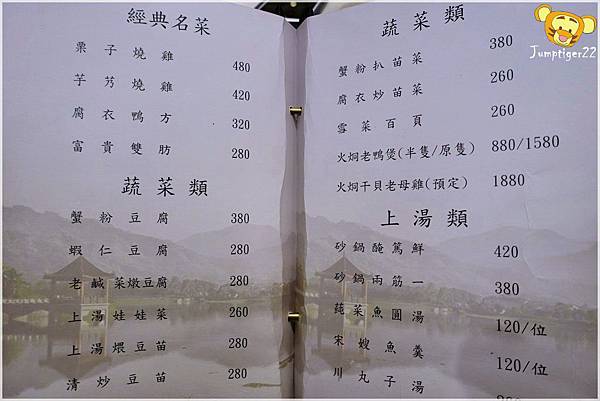 經典名菜
栗子燒雞 480
芋艿燒雞 420
腐衣鴨方 320
富貴雙肪 280
蔬菜類
蟹粉豆腐 380
蝦仁豆腐 280
老鹹菜燉豆腐 280
上湯娃娃菜 260
上湯煨豆苗 280
清炒豆苗 280
蔬菜類
蟹粉扒苗菜 380
腐衣炒苗菜 260
雪菜百頁 260
火烔老鴨煲(半隻/原隻) 880/1580
火烔干貝老母雞(預定) 1880
上湯類
砂鍋醃篤鮮 420
砂鍋兩筋一 380
蒓菜魚圓湯 120/位
宋嫂魚羹 120/位
川丸子湯
Jumptiger22